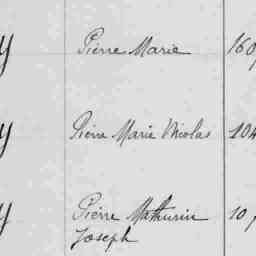 y Pierre Marie 160
y Pierre Marie Nicolas 104
y Pierre Mathurin 10
Joseph